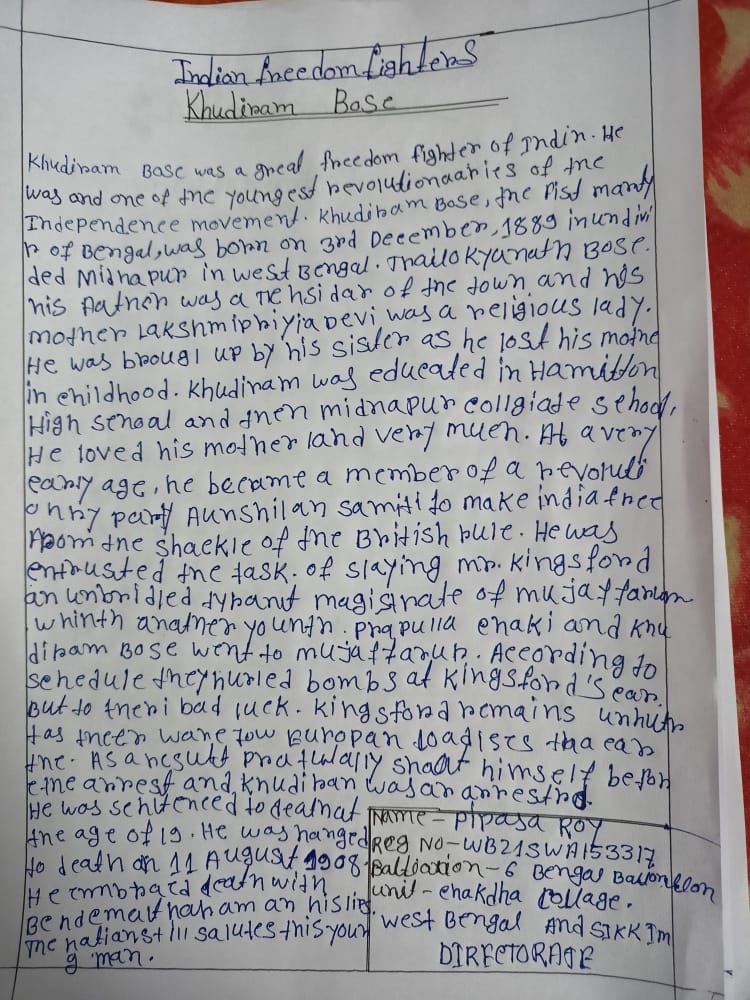 Indian freedom fighters
Khudiram Base
Khudiram Base was a great freedom fighter of Indin. He
was and one of the youngest revolutionaaries of the
Independence movement. Khudiram Base, the Pist manty
r of Bengal, was born on 3rd December, 1889 in undivi
ded Midnapur in west Bengal. Trailokyanath Base.
his Father was a Tehsidar of the town and his
mother Lakshmipriyia Devi was a religious lady.
He was brougl up by his sister as he lost his mothe
in childhood. Khudiram was educated in Hamilton
High School and then midnapur collgiate School,
He loved his mother land very much. At a very
early age, he became a member of a revoluti
onry party Aunshilan samiti to make india free
from the shackle of the British rule. He was
entrusted the task. of slaying mr. Kingsford
an unbridled tyrant magistrate of mujaffarum
whinth anather younth. Prapulla chaki and Khu
diram Base went to mujaffarur. According to
schedule they hurled bombs at Kingsford's car.
But to theri bad luck. Kingsford remains unhutr
tas theer ware tow Europan loadises tha car
the. As a resutt prafulally shoot himself befor
e the arrest and Khudiran was an arrestrd.
He was sentenced to deathat
the age of 19. He was hanged
to death on 11 August 1908.
He embraced death with
Bendematharam an his lips.
The nationstill salutes this youn
g man.
Name - Pipasa Roy
Reg No - WB21SWA153317
Battioation - 6 Bengal Battonllon
unit - chakdha Collage.
West Bengal And SIKKIm
DIRECTORATE